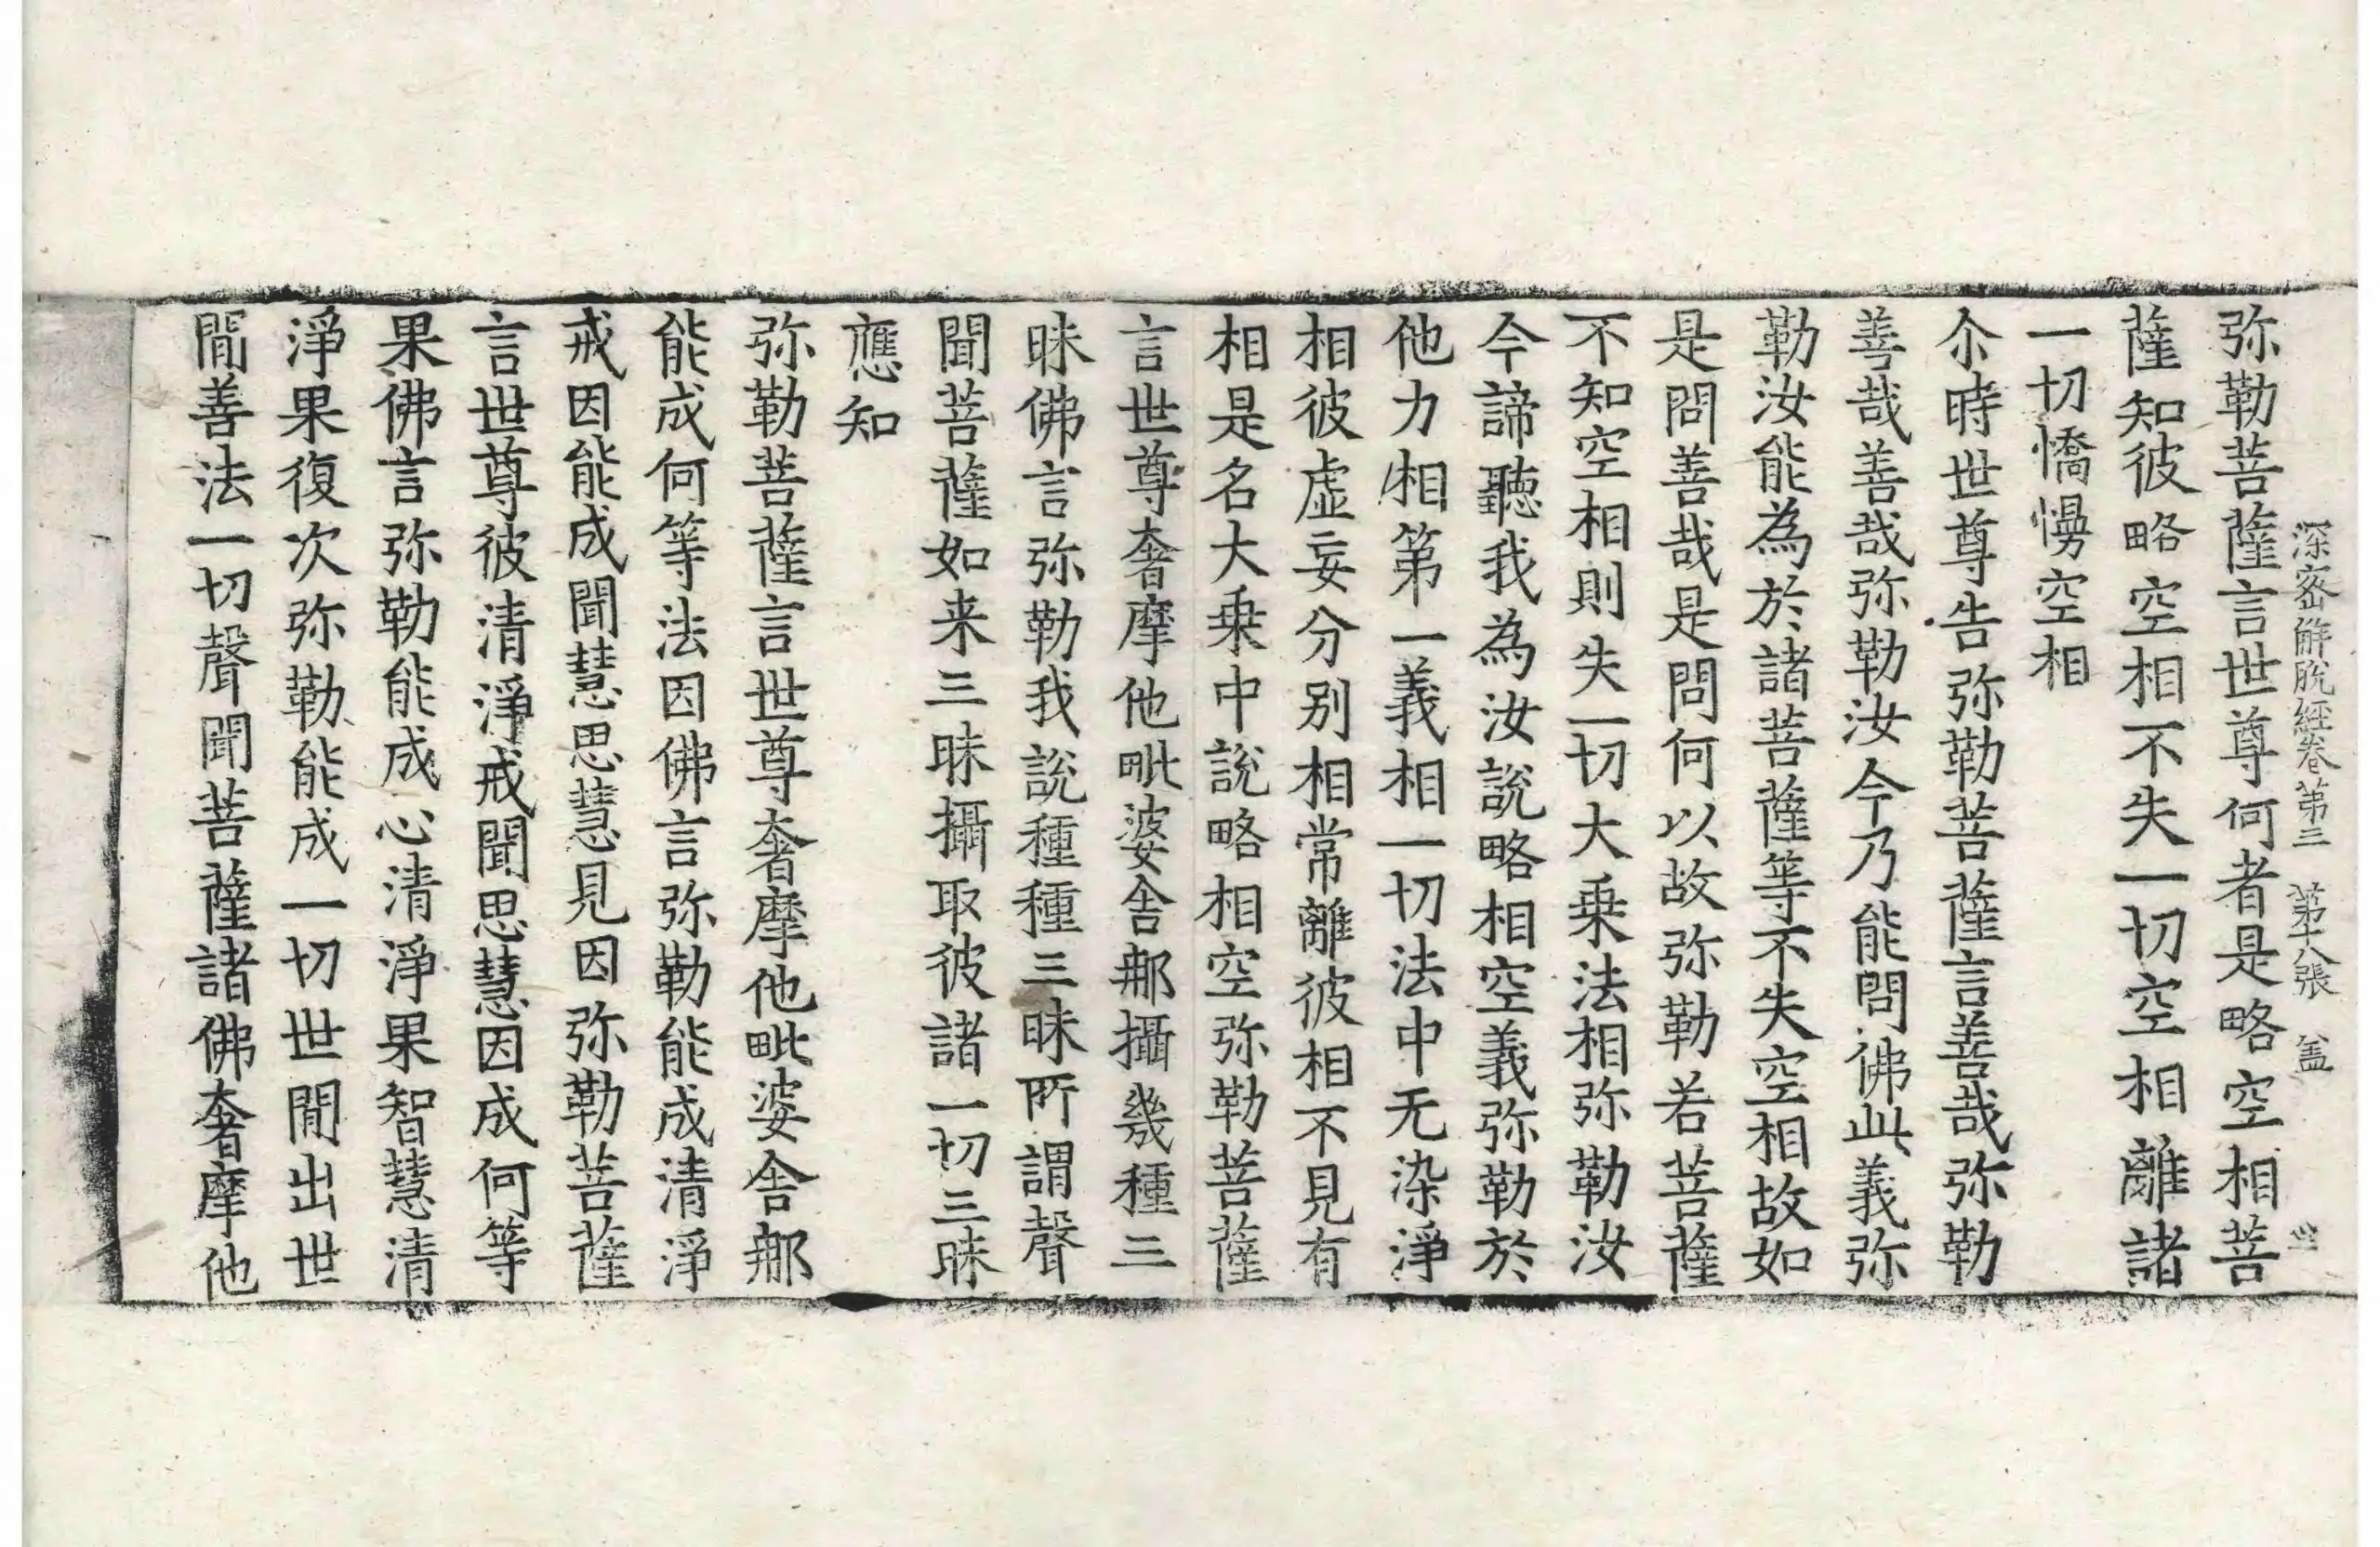 深密解脫經卷第三　第十八張　蓋
弥勒菩薩言世尊何者是略空相菩
薩知彼略空相不失一切空相離諸
一切憍慢空相
尒時世尊告弥勒菩薩言善哉弥勒
善哉善哉弥勒汝今乃能問佛此義弥
勒汝能為於諸菩薩等不失空相故如
是問善哉是問何以故弥勒若菩薩
不知空相則失一切大乗法相弥勒汝
今諦聽我為汝說略相空義弥勒於
他力相第一義相一切法中无染淨
相彼虛妄分別相常離彼相不見有
相是名大乗中說略相空弥勒菩薩
言世尊奢摩他毗婆舍𨚗攝幾種三
昧佛言弥勒我說種種三昧所謂聲
聞菩薩如来三昧攝取彼諸一切三昧
應知
弥勒菩薩言世尊奢摩他毗婆舍𨚗
能成何等法因佛言弥勒能成清淨
戒因能成聞慧思慧見因弥勒菩薩
言世尊彼清淨戒聞思慧因成何等
果佛言弥勒能成心清淨果智慧清
淨果復次弥勒能成一切世閒出世
閒善法一切聲聞菩薩諸佛奢摩他